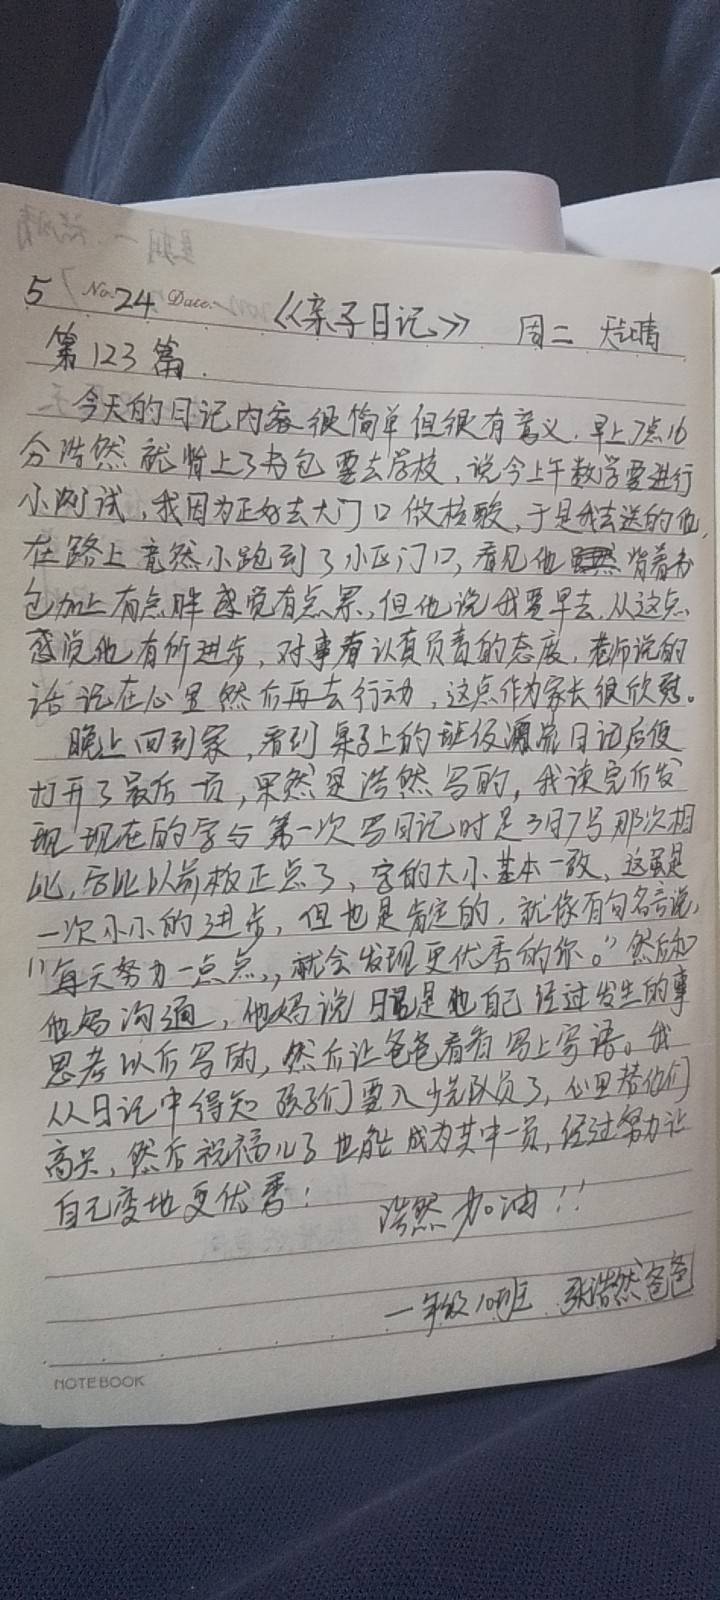 5 No. 24 Date. 《亲子日记》 周二 天气晴
第123篇.
今天的日记内容很简单但很有意义.早上7点16
分浩然就背上了书包要去学校,说今上午数学要进行
小测试,我因为正好去大门口做核酸,于是我去送的他,
在路上竟然小跑到了小区门口,看见他背着书
包加上有点胖感觉有点累,但他说我要早去.从这点
感觉他有所进步,对事有认真负责的态度,老师说的
话记在心里然后再去行动,这点作为家长很欣慰。
晚上回到家,看到桌子上的班级漂流日记后便
打开了最后一页,果然是浩然写的,我读完后发
现现在的字与第一次写日记时是3月7号那次相
比,字比以前板正点了,字的大小基本一致,这虽是
一次小小的进步,但也是肯定的,就像有句名言说,
"每天努力一点点,,就会发现更优秀的你。"然后和
他妈沟通,他妈说日记是他自己经过发生的事
思考以后写的,然后让爸爸看看写上寄语。我
从日记中得知孩子们要入少先队员了,心里替他们
高兴,然后祝福儿子也能成为其中一员,经过努力让
自己变地更优秀!
浩然加油!!
一年级10班 张浩然爸爸
NOTEBOOK